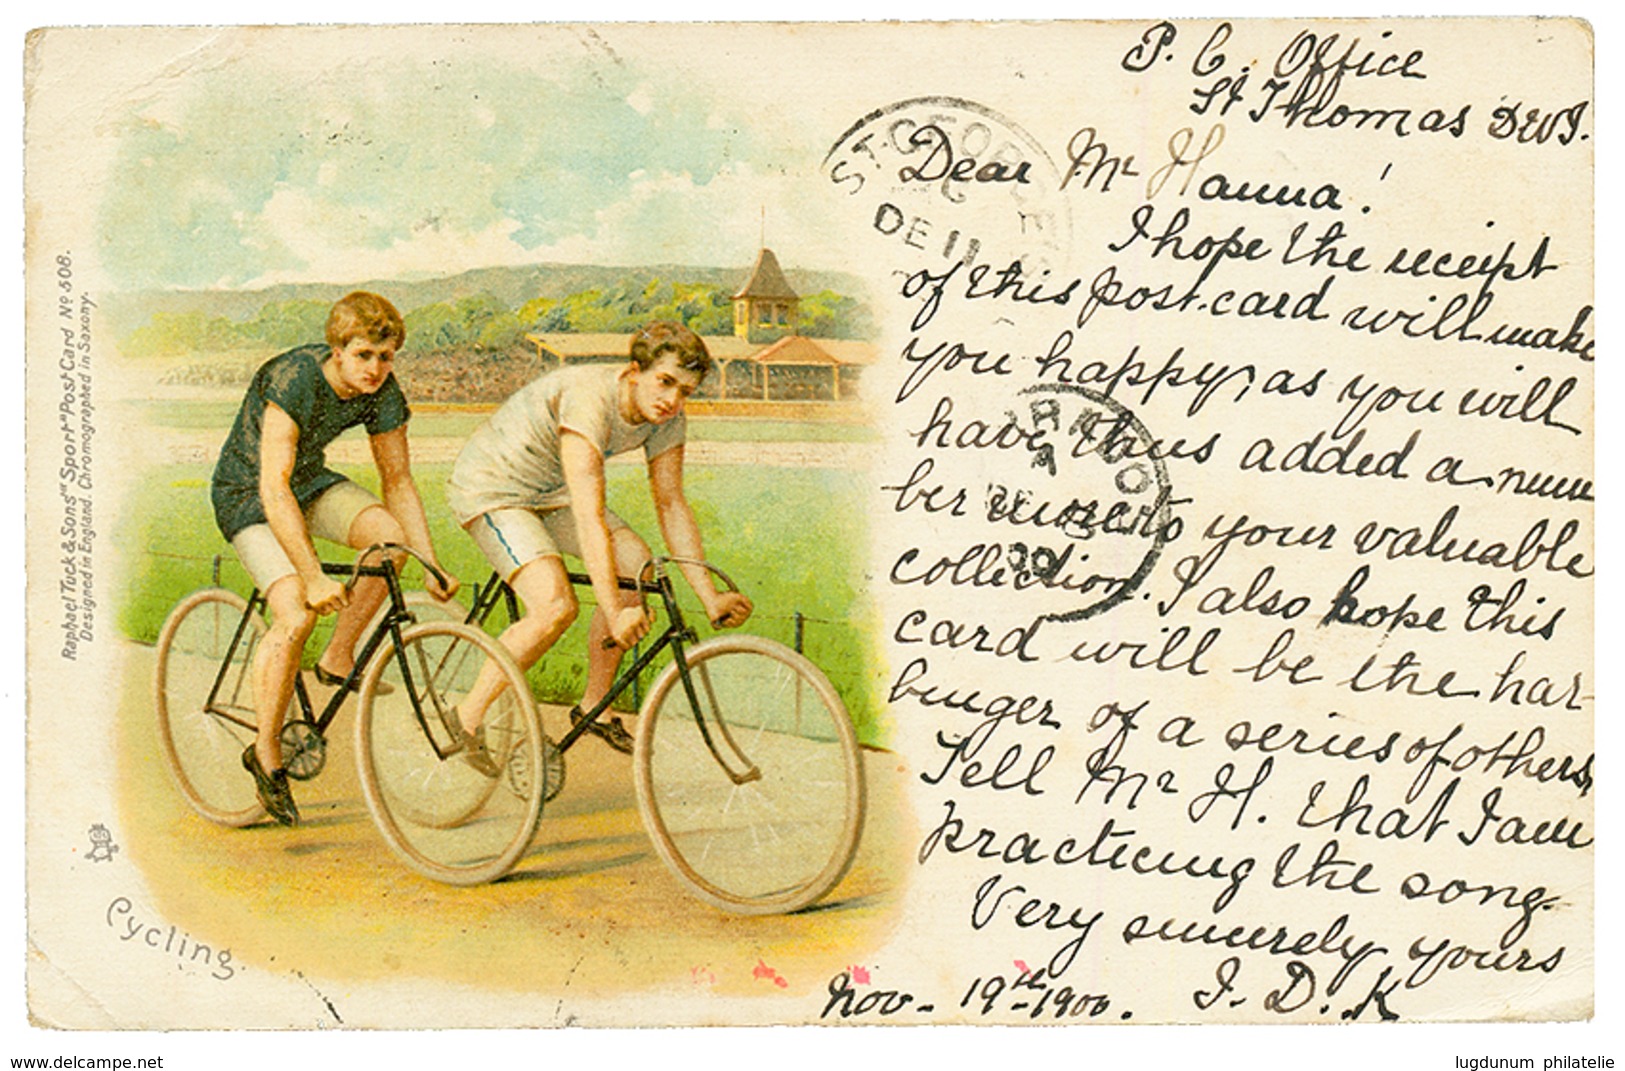 P. C. Office
St Thomas DWI.
Dear Mr Hanna!
I hope the receipt
of this post-card will make
you happy, as you will
have thus added a num
ber more to your valuable
collection. I also hope this
card will be the har-
binger of a series of others.
Tell Mr H. that I am
practicing the song.
Very sincerely yours
Nov. 19th 1900. I. D. K
ST. GEORGE'S
DE 11
DE
00
Raphael Tuck & Sons' "Sport" Post Card No 508.
Designed in England. Chromographed in Saxony.
Cycling.
www.delcampe.net
lugdunum philatelie